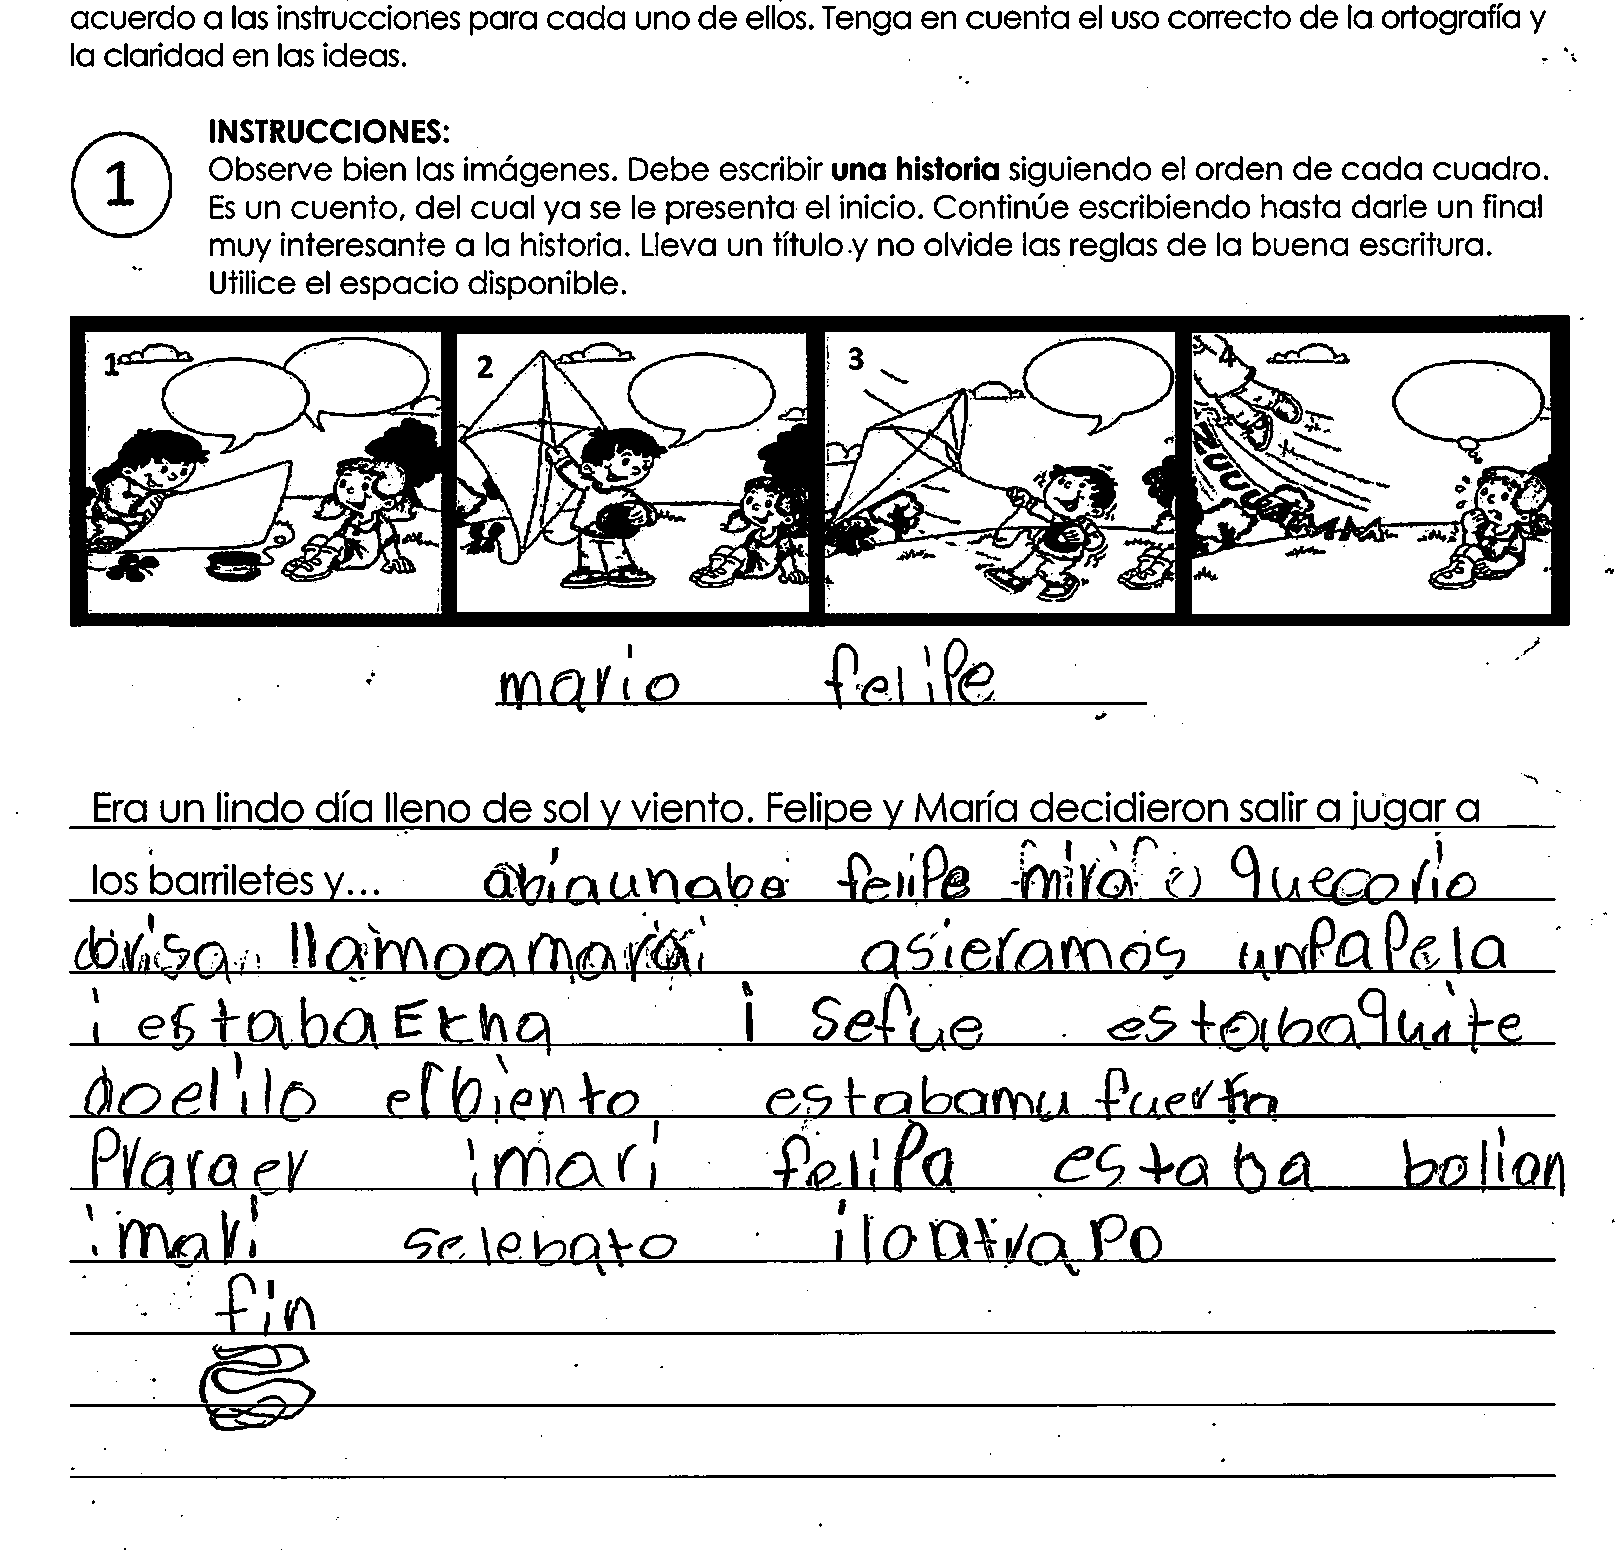 acuerdo a las instrucciones para cada uno de ellos. Tenga en cuenta el uso correcto de la ortografía y
la claridad en las ideas.
1
INSTRUCCIONES:
Observe bien las imágenes. Debe escribir una historia siguiendo el orden de cada cuadro.
Es un cuento, del cual ya se le presenta el inicio. Continúe escribiendo hasta darle un final
muy interesante a la historia. Lleva un título y no olvide las reglas de la buena escritura.
Utilice el espacio disponible.
1 2 3 4
mario felipe
Era un lindo día lleno de sol y viento. Felipe y María decidieron salir a jugar a
los barriletes y... abiaunabe felipe quecorio
llamoamarai asieramos unpapela
i estaba i sefue estabaquite
doelilo elbiento estabamu
Praraer imari felipa estaba bolian
imari selebato iloatrapo
fin